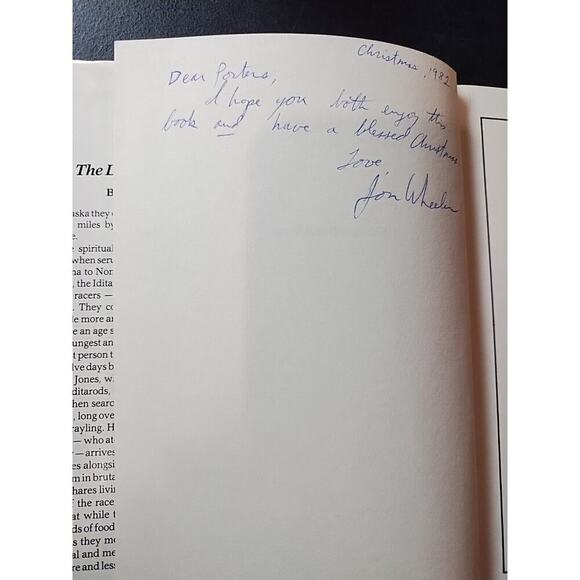 Christmas, 1982
Dear Porters,
I hope you both enjoy this
book and have a blessed Christmas
Love
Jon Wheeler
The L
B
uska they
miles by
e.
e spiritual
when serv
na to Nom
, the Idita
racers —
. They co
le more an
e an age s
ungest an
t person t
lve days b
Jones, w
ditarods,
hen searc
, long ove
rayling. H
— who at
y — arrives
es alongsi
m in bruta
hares livi
f the race
at while t
ds of food
s they mo
al and me
re and less